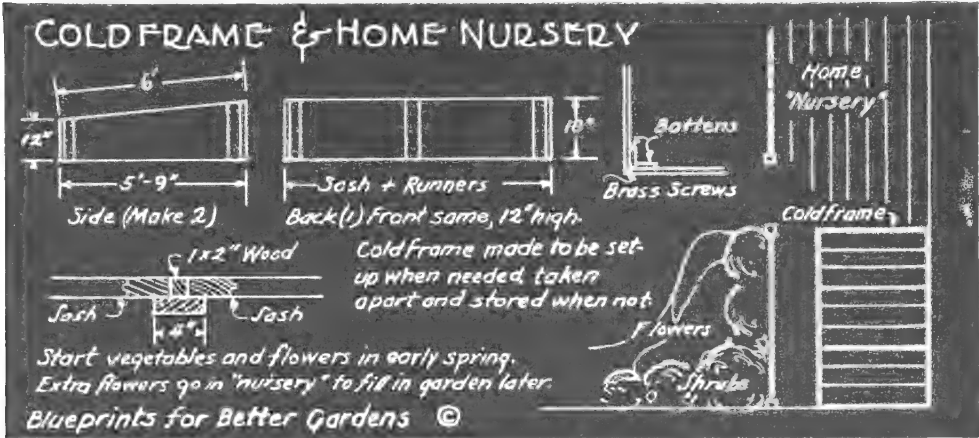 COLDFRAME & HOME NURSERY
6'
12"
5'-9"
Side (Make 2)
18"
Sash + Runners
Back(1) Front same, 12" high.
Battens
Brass Screws
Home
"Nursery"
Coldframe
1x2" Wood
Sash
Sash
4"
Coldframe made to be set-
up when needed, taken
apart and stored when not.
Flowers
Shrubs
Start vegetables and flowers in early spring.
Extra flowers go in "nursery" to fill in garden later.
Blueprints for Better Gardens ©